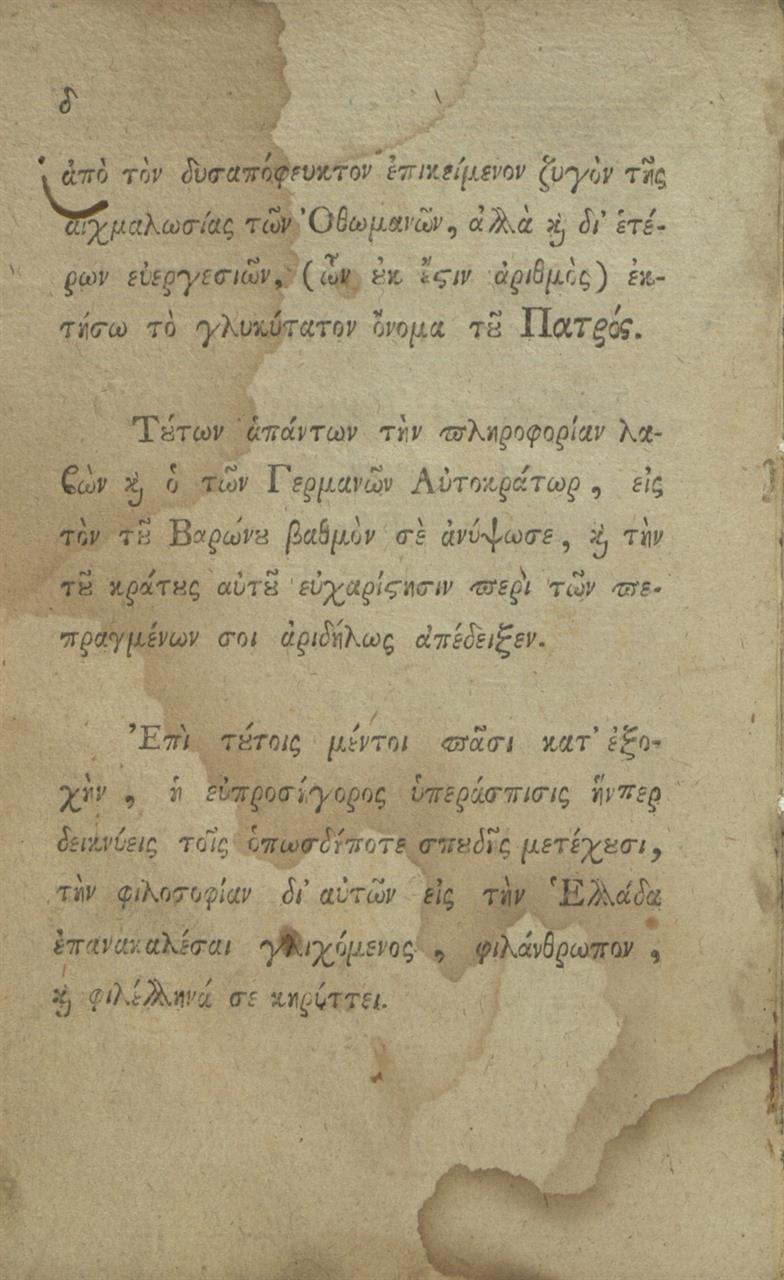 δ
ἀπὸ τὸν δυσαπόφευκτον ἐπικείμενον ζυγὸν τῆς
αἰχμαλωσίας τῶν Ὀθωμανῶν, ἀλλὰ ϗ̀ δι' ἑτέ-
ρων εὐεργεσιῶν, (ὧν ȣ̓κ ἔϛιν ἀριθμὸς) ἐκ-
τήσω τὸ γλυκύτατον ὄνομα τȣ͂ Πατρός.
Τȣ́των ἁπάντων τὴν ϖληροφορίαν λα-
ϐὼν ϗ̀ ὁ τῶν Γερμανῶν Αὐτοκράτωρ, εἰς
τὸν τȣ͂ Βαρώνȣ βαθμὸν σὲ ἀνύψωσε, ϗ̀ τὴν
τȣ͂ κράτȣς αὐτȣ͂ εὐχαρίϛησιν ϖερὶ τῶν ϖε-
πραγμένων σοι ἀριδήλως ἀπέδειξεν.
Ἐπὶ τȣ́τοις μέντοι ϖᾶσι κατ' ἐξο-
χὴν, ἡ εὐπροσήγορος ὑπεράσπισις ἥνπερ
δεικνύεις τοῖς ὁπωσδήποτε σπȣδῆς μετέχȣσι,
τὴν φιλοσοφίαν δι' αὐτῶν εἰς τὴν Ἑλλάδα
ἐπανακαλέσαι γλιχόμενος, φιλάνθρωπον,
ϗ̀ φιλέλληνά σε κηρύττει.